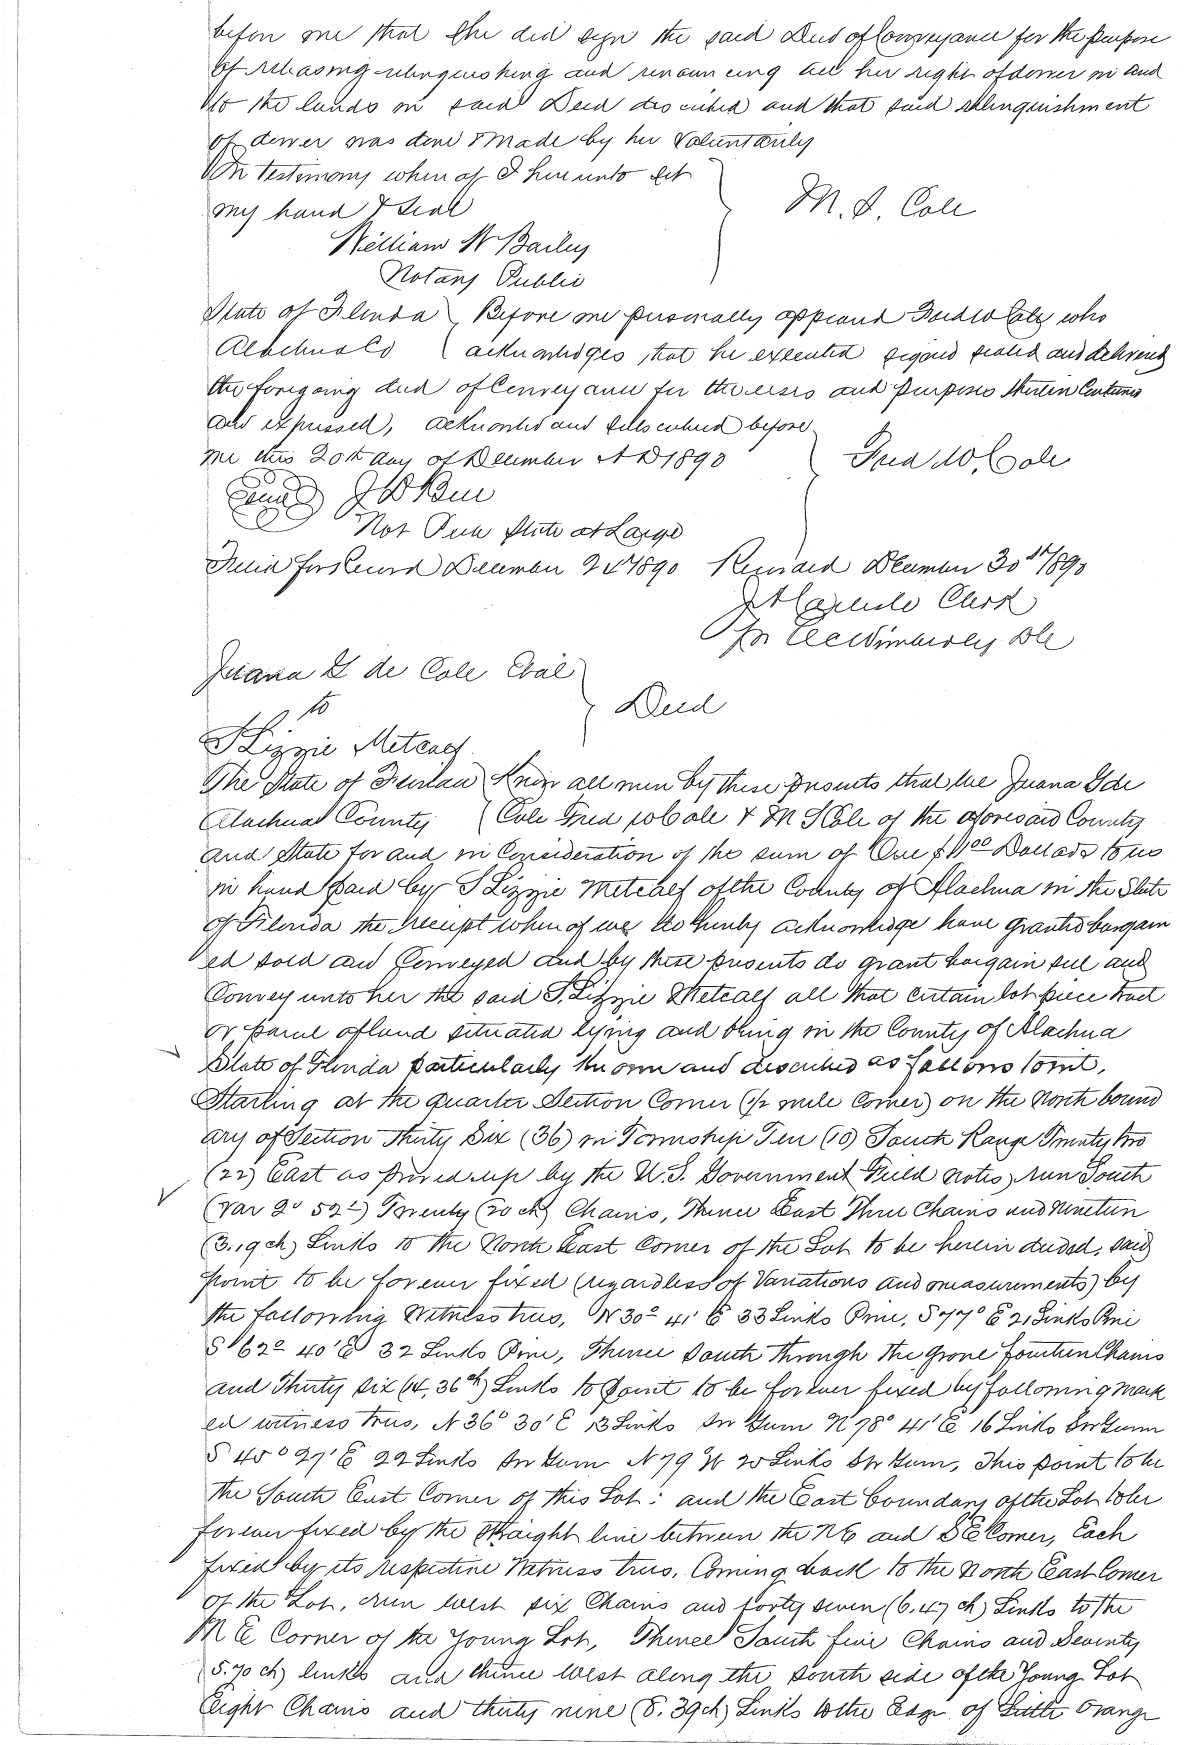 before me that She did sign the said Deed of Conveyance for the purpose
of releasing relinquishing and renouncing all her right of dower in and
to the lands in said Deed described and that said relinquishment
of dower was done & made by her Voluntarily
In testimony where of I here unto set
my hand & Seal
M. S. Cole
William W Bailey
Notary Public
State of Florida Before me personally appeared Fred W Cole who
Alachua Co acknowledges that he executed signed sealed and delivered
the foregoing deed of Conveyance for the uses and purposes therein Contained
and expressed, acknowled and subscribed before
me this 20th day of December A D 1890
Fred W. Cole
J D
Not Pub State at Large
Filed for Record December 24 1890 Record December 30th 1890
J A Carlisle Clerk
Wimberly D C
Juana G de Cole Etal
to
Deed
S Lizzie Metcalf
The State of Florida Know all men by these presents that We Juana G de
Alachua County Cole Fred W Cole & M S Cole of the aforesaid County
and State for and in Consideration of the sum of One $1 00 Dollars to us
in hand paid by S Lizzie Metcalf of the County of Alachua in the State
of Florida the receipt where of we do hereby acknowledge have granted bargain
ed sold and Conveyed and by these presents do grant bargain sell and
Convey unto her the said S. Lizzie Metcalf all that certain lot piece tract
or parcel of land situated lying and being in the County of Alachua
State of Florida particularly known and described as follows towit.
Starting at the quarter Section Corner (1/2 mile Corner) on the North bound
ary of Section Thirty Six (36) in Township Ten (10) South Range Twenty two
(22) East as proved up by the U.S. Government Field notes, run South
(Var 2° 52') Twenty (20 ch) Chains, Thence East Three Chains and nineteen
(3.19 ch) Links to the North East Corner of the Lot to be herein deeded, said
point to be forever fixed (regardless of Variations and measurements) by
the following Witness trees, N 30° 41' E 33 Links Pine, S 77° E 21 Links Pine
S 62° 40' E 32 Links Pine, Thence South through the grove fourteen Chains
and Thirty six (14.36 ch) Links to point to be forever fixed by following mark
ed witness trees, N 36° 30' E 13 Links Sw Gum N 78° 41' E 16 Links Sw Gum
S 45° 27' E 22 Links Sw Gum N 79 W 20 Links Sw Gum, This point to be
the South East Corner of this Lot: and the East boundary of the Lot to be
forever fixed by the straight line between the N E and S E Corner, Each
fixed by its respective Witness trees. Coming back to the North East Corner
of the Lot, run West six Chains and forty seven (6.47 ch) Links to the
N E Corner of the Young Lot, Thence South five Chains and Seventy
(5.70 ch) links and thence West along the South side of the Young Lot
Eight Chains and thirty nine (8.39 ch) Links to the Edge of Little Orange